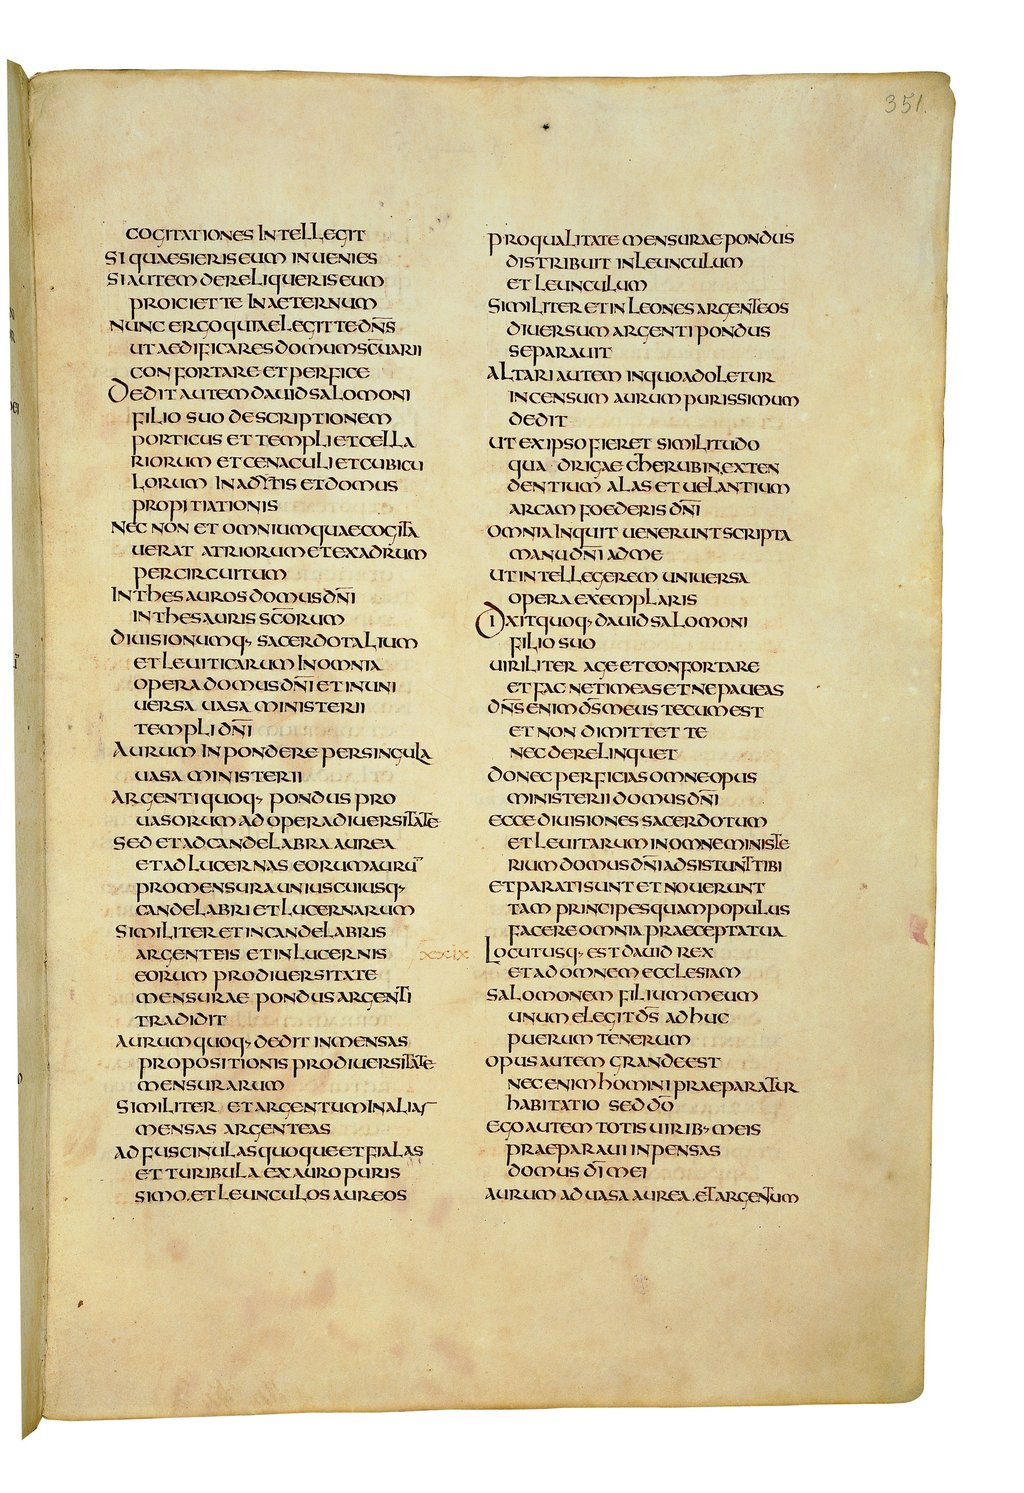 351.
COGITATIONES INTELLEGIT
SI QUAESIERIS EUM INUENIES
SI AUTEM DERELIQUERIS EUM
PROICIET TE IN AETERNUM
NUNC ERGO QUIA ELEGIT TE DN̅S
UT AEDIFICARES DOMUM SC̅UARII
CONFORTARE ET PERFICE
DEDIT AUTEM DAUID SALOMONI
FILIO SUO DESCRIPTIONEM
PORTICUS ET TEMPLI ET CELLA
RIORUM ET CENACULI ET CUBICU
LORUM IN ADYTIS ET DOMUS
PROPITIATIONIS
NEC NON ET OMNIUM QUAE COGITA
UERAT ATRIORUM ET EXADRUM
PER CIRCUITUM
IN THESAUROS DOMUS DN̅I
IN THESAURIS SC̅ORUM
DIUISIONUMQ· SACERDOTALIUM
ET LEUITICARUM IN OMNIA
OPERA DOMUS DN̅I ET IN UNI
UERSA UASA MINISTERII
TEMPLI DN̅I
AURUM IN PONDERE PER SINGULA
UASA MINISTERII
ARGENTI QUOQ· PONDUS PRO
UASORUM AD OPERA DIUERSITATE
SED ET AD CANDELABRA AUREA
ET AD LUCERNAS EORUM AURU̅
PRO MENSURA UNIUSCUIUSQ·
CANDELABRI ET LUCERNARUM
SIMILITER ET IN CANDELABRIS
ARGENTEIS ET IN LUCERNIS
EORUM PRO DIUERSITATE
MENSURAE PONDUS ARGENTI
TRADIDIT
AURUM QUOQ· DEDIT IN MENSAS
PROPOSITIONIS PRO DIUERSITATE
MENSURARUM
SIMILITER ET ARGENTUM IN ALIAS
MENSAS ARGENTEAS
AD FUSCINULAS QUOQUE ET FIALAS
ET TURIBULA EX AURO PURIS
SIMO. ET LEUNCULOS AUREOS
PRO QUALITATE MENSURAE PONDUS
DISTRIBUIT IN LEUNCULUM
ET LEUNCULUM
SIMILITER ET IN LEONES ARGENTEOS
DIUERSUM ARGENTI PONDUS
SEPARAUIT
ALTARI AUTEM IN QUO ADOLETUR
INCENSUM AURUM PURISSIMUM
DEDIT
UT EX IPSO FIERET SIMILITUDO
QUADRIGAE CHERUBIN. EXTEN
DENTIUM ALAS ET UELANTIUM
ARCAM FOEDERIS DN̅I
OMNIA INQUIT UENERUNT SCRIPTA
MANU DN̅I AD ME
UT INTELLEGEREM UNIUERSA
OPERA EXEMPLARIS
DIXIT QUOQ· DAUID SALOMONI
FILIO SUO
UIRILITER AGE ET CONFORTARE
ET FAC NE TIMEAS ET NE PAUEAS
DN̅S ENIM DS̅ MEUS TECUM EST
ET NON DIMITTET TE
NEC DERELINQUET
DONEC PERFICIAS OMNE OPUS
MINISTERII DOMUS DN̅I
ECCE DIUISIONES SACERDOTUM
ET LEUITARUM IN OMNE MINISTE
RIUM DOMUS DN̅I ADSISTUNT TIBI
ET PARATI SUNT ET NOUERUNT
TAM PRINCIPES QUAM POPULUS
FACERE OMNIA PRAECEPTA TUA
xxix LOCUTUSQ· EST DAUID REX
ET AD OMNEM ECCLESIAM
SALOMONEM FILIUM MEUM
UNUM ELEGIT DS̅ ADHUC
PUERUM TENERUM
OPUS AUTEM GRANDE EST
NEC ENIM HOMINI PRAEPARATUR
HABITATIO SED DO̅
EGO AUTEM TOTIS UIRIB· MEIS
PRAEPARAUI INPENSAS
DOMUS DI̅ MEI
AURUM AD UASA AUREA. ET ARGENTUM